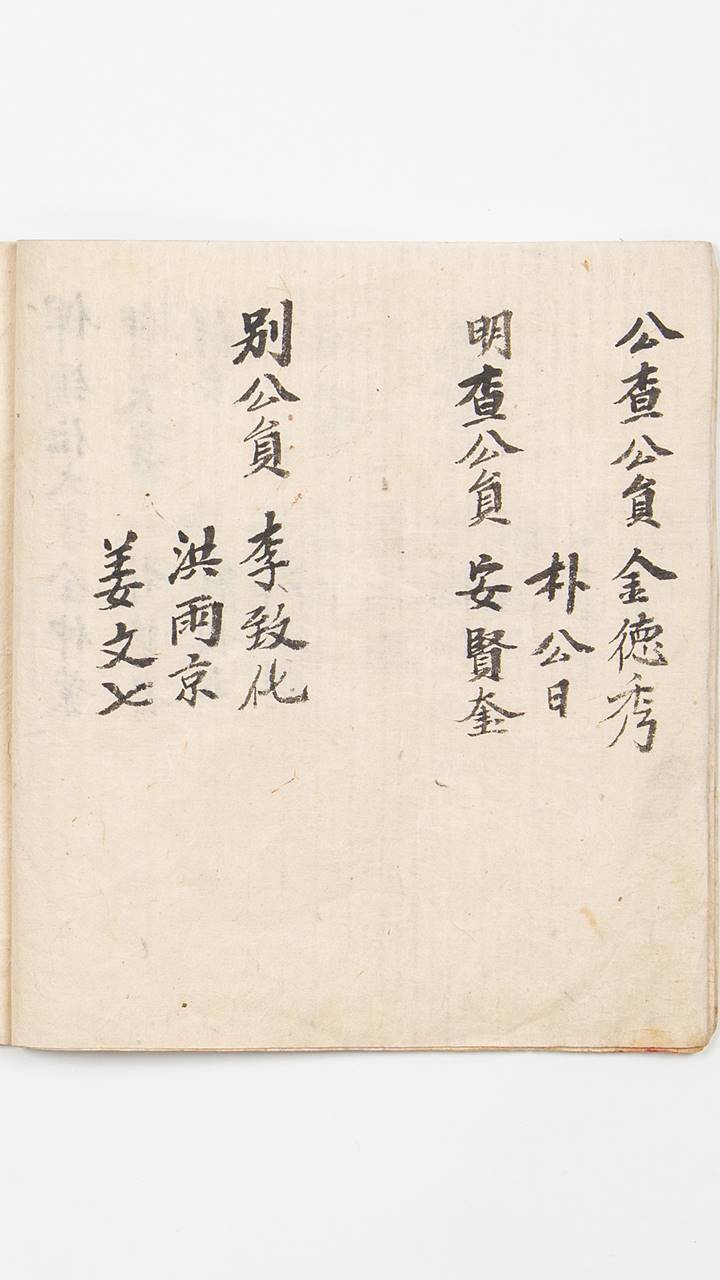 公查公員 金德秀
朴公日
明查公員 安賢奎
別公員 李致化
洪雨京
姜文七